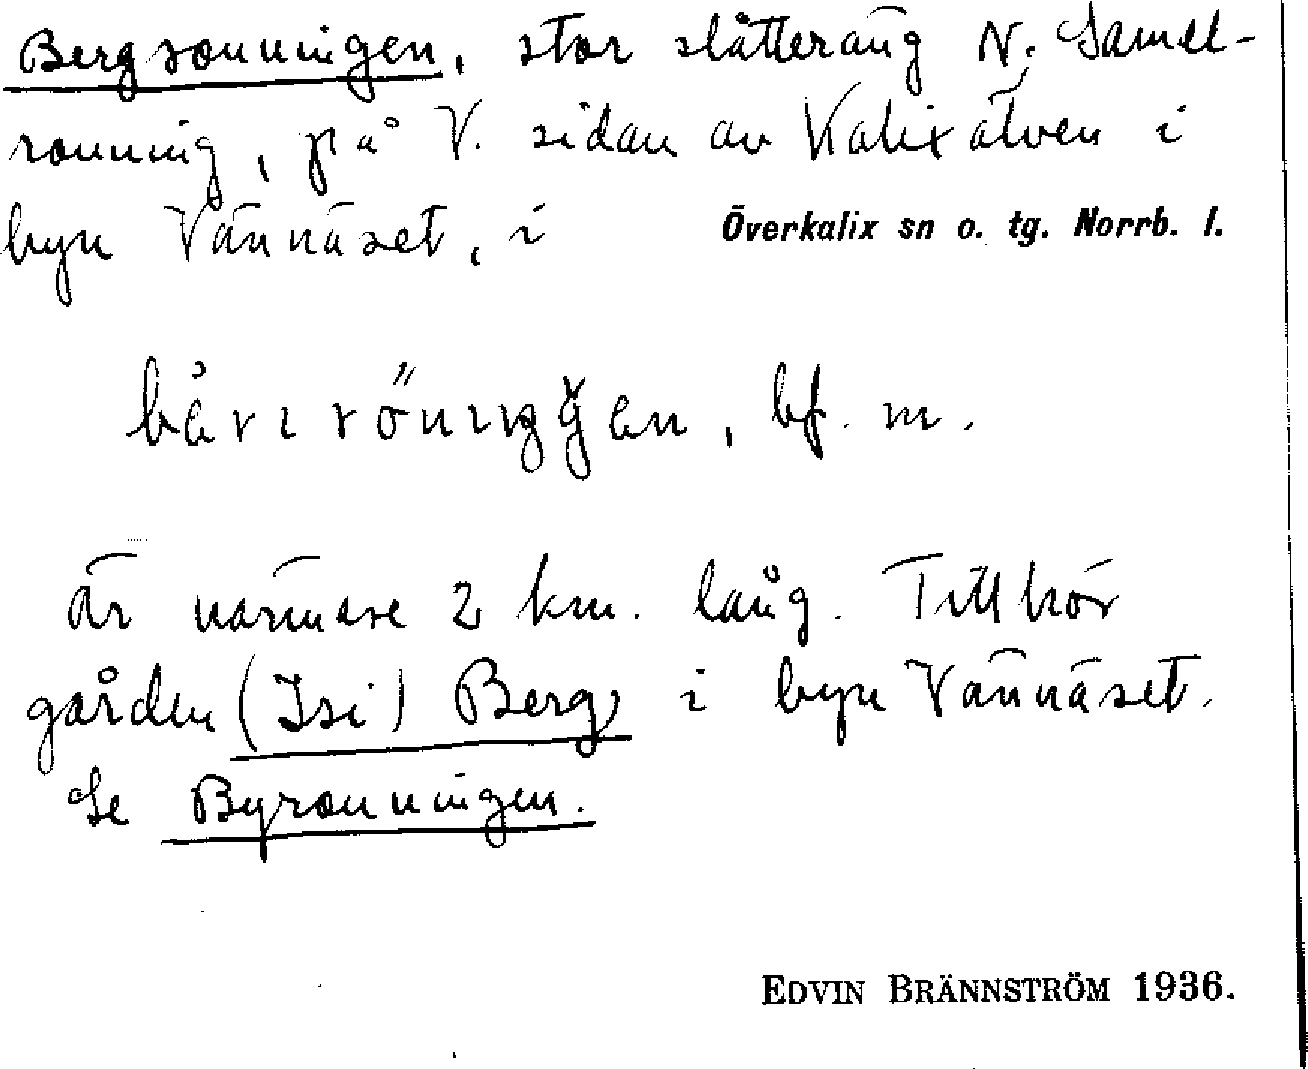 Bergronningen, stor slåtteräng N. Samel-
ronning, på V. sidan av Kalixälven i
byn Vännäset, i Överkalix sn o. tg. Norrb. l.
bf. m.
är närmare 2 km. lång. Tillhör
gården (Isi) Berg i byn Vännäset.
Se Byronningen.
EDVIN BRÄNNSTRÖM 1936.